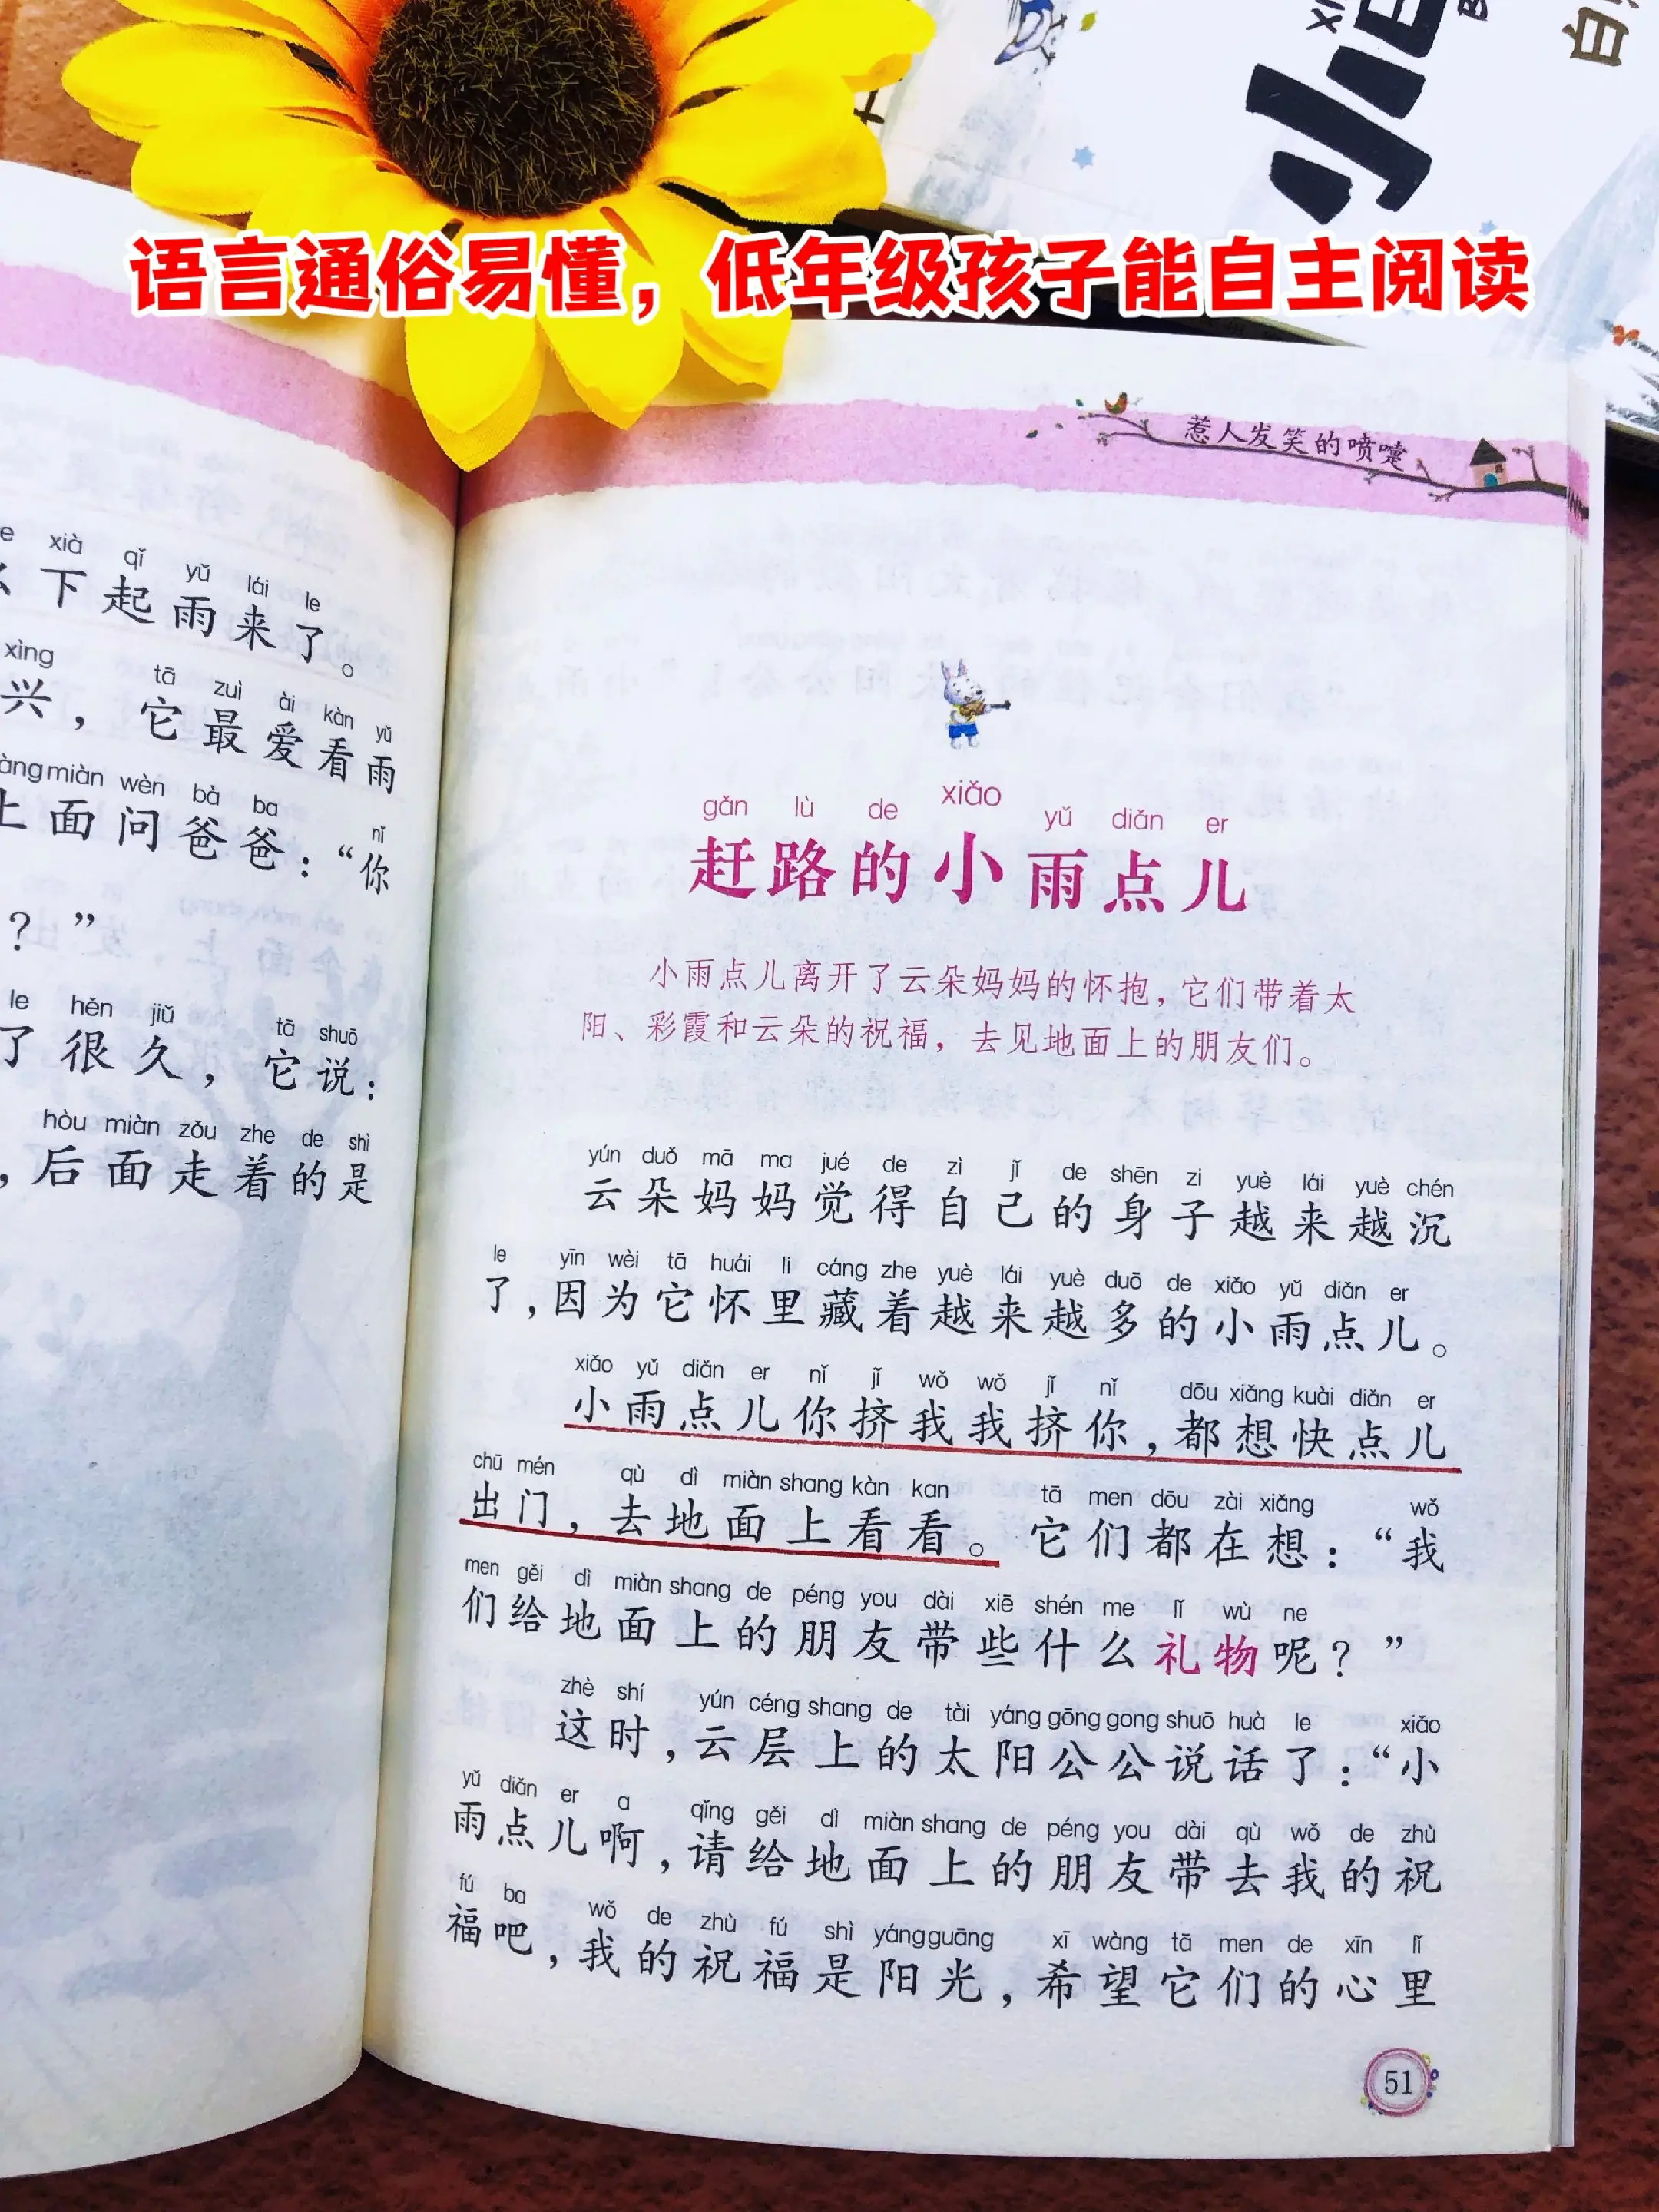 语言通俗易懂，低年级孩子能自主阅读
惹人发笑的喷嚏
xià qǐ yǔ lái le
下起雨来了。
xìng tā zuì ài kàn yǔ
兴，它最爱看雨
miàn wèn bà ba nǐ
上面问爸爸：“你
？”
le hěn jiǔ tā shuō
了很久，它说：
hòu miàn zǒu zhe de shì
，后面走着的是
gǎn lù de xiǎo yǔ diǎn er
赶路的小雨点儿
小雨点儿离开了云朵妈妈的怀抱，它们带着太
阳、彩霞和云朵的祝福，去见地面上的朋友们。
yún duǒ mā ma jué de zì jǐ de shēn zi yuè lái yuè chén
云朵妈妈觉得自己的身子越来越沉
le yīn wèi tā huái li cáng zhe yuè lái yuè duō de xiǎo yǔ diǎn er
了，因为它怀里藏着越来越多的小雨点儿。
xiǎo yǔ diǎn er nǐ jǐ wǒ wǒ jǐ nǐ dōu xiǎng kuài diǎn er
小雨点儿你挤我我挤你，都想快点儿
chū mén qù dì miàn shang kàn kan tā men dōu zài xiǎng wǒ
出门，去地面上看看。它们都在想：“我
men gěi dì miàn shang de péng you dài xiē shén me lǐ wù ne
们给地面上的朋友带些什么礼物呢？”
zhè shí yún céng shang de tài yáng gōng gong shuō huà le xiǎo
这时，云层上的太阳公公说话了：“小
yǔ diǎn er a qǐng gěi dì miàn shang de péng you dài qù wǒ de zhù
雨点儿啊，请给地面上的朋友带去我的祝
fú ba wǒ de zhù fú shì yáng guāng xī wàng tā men de xīn lǐ
福吧，我的祝福是阳光，希望它们的心里
51